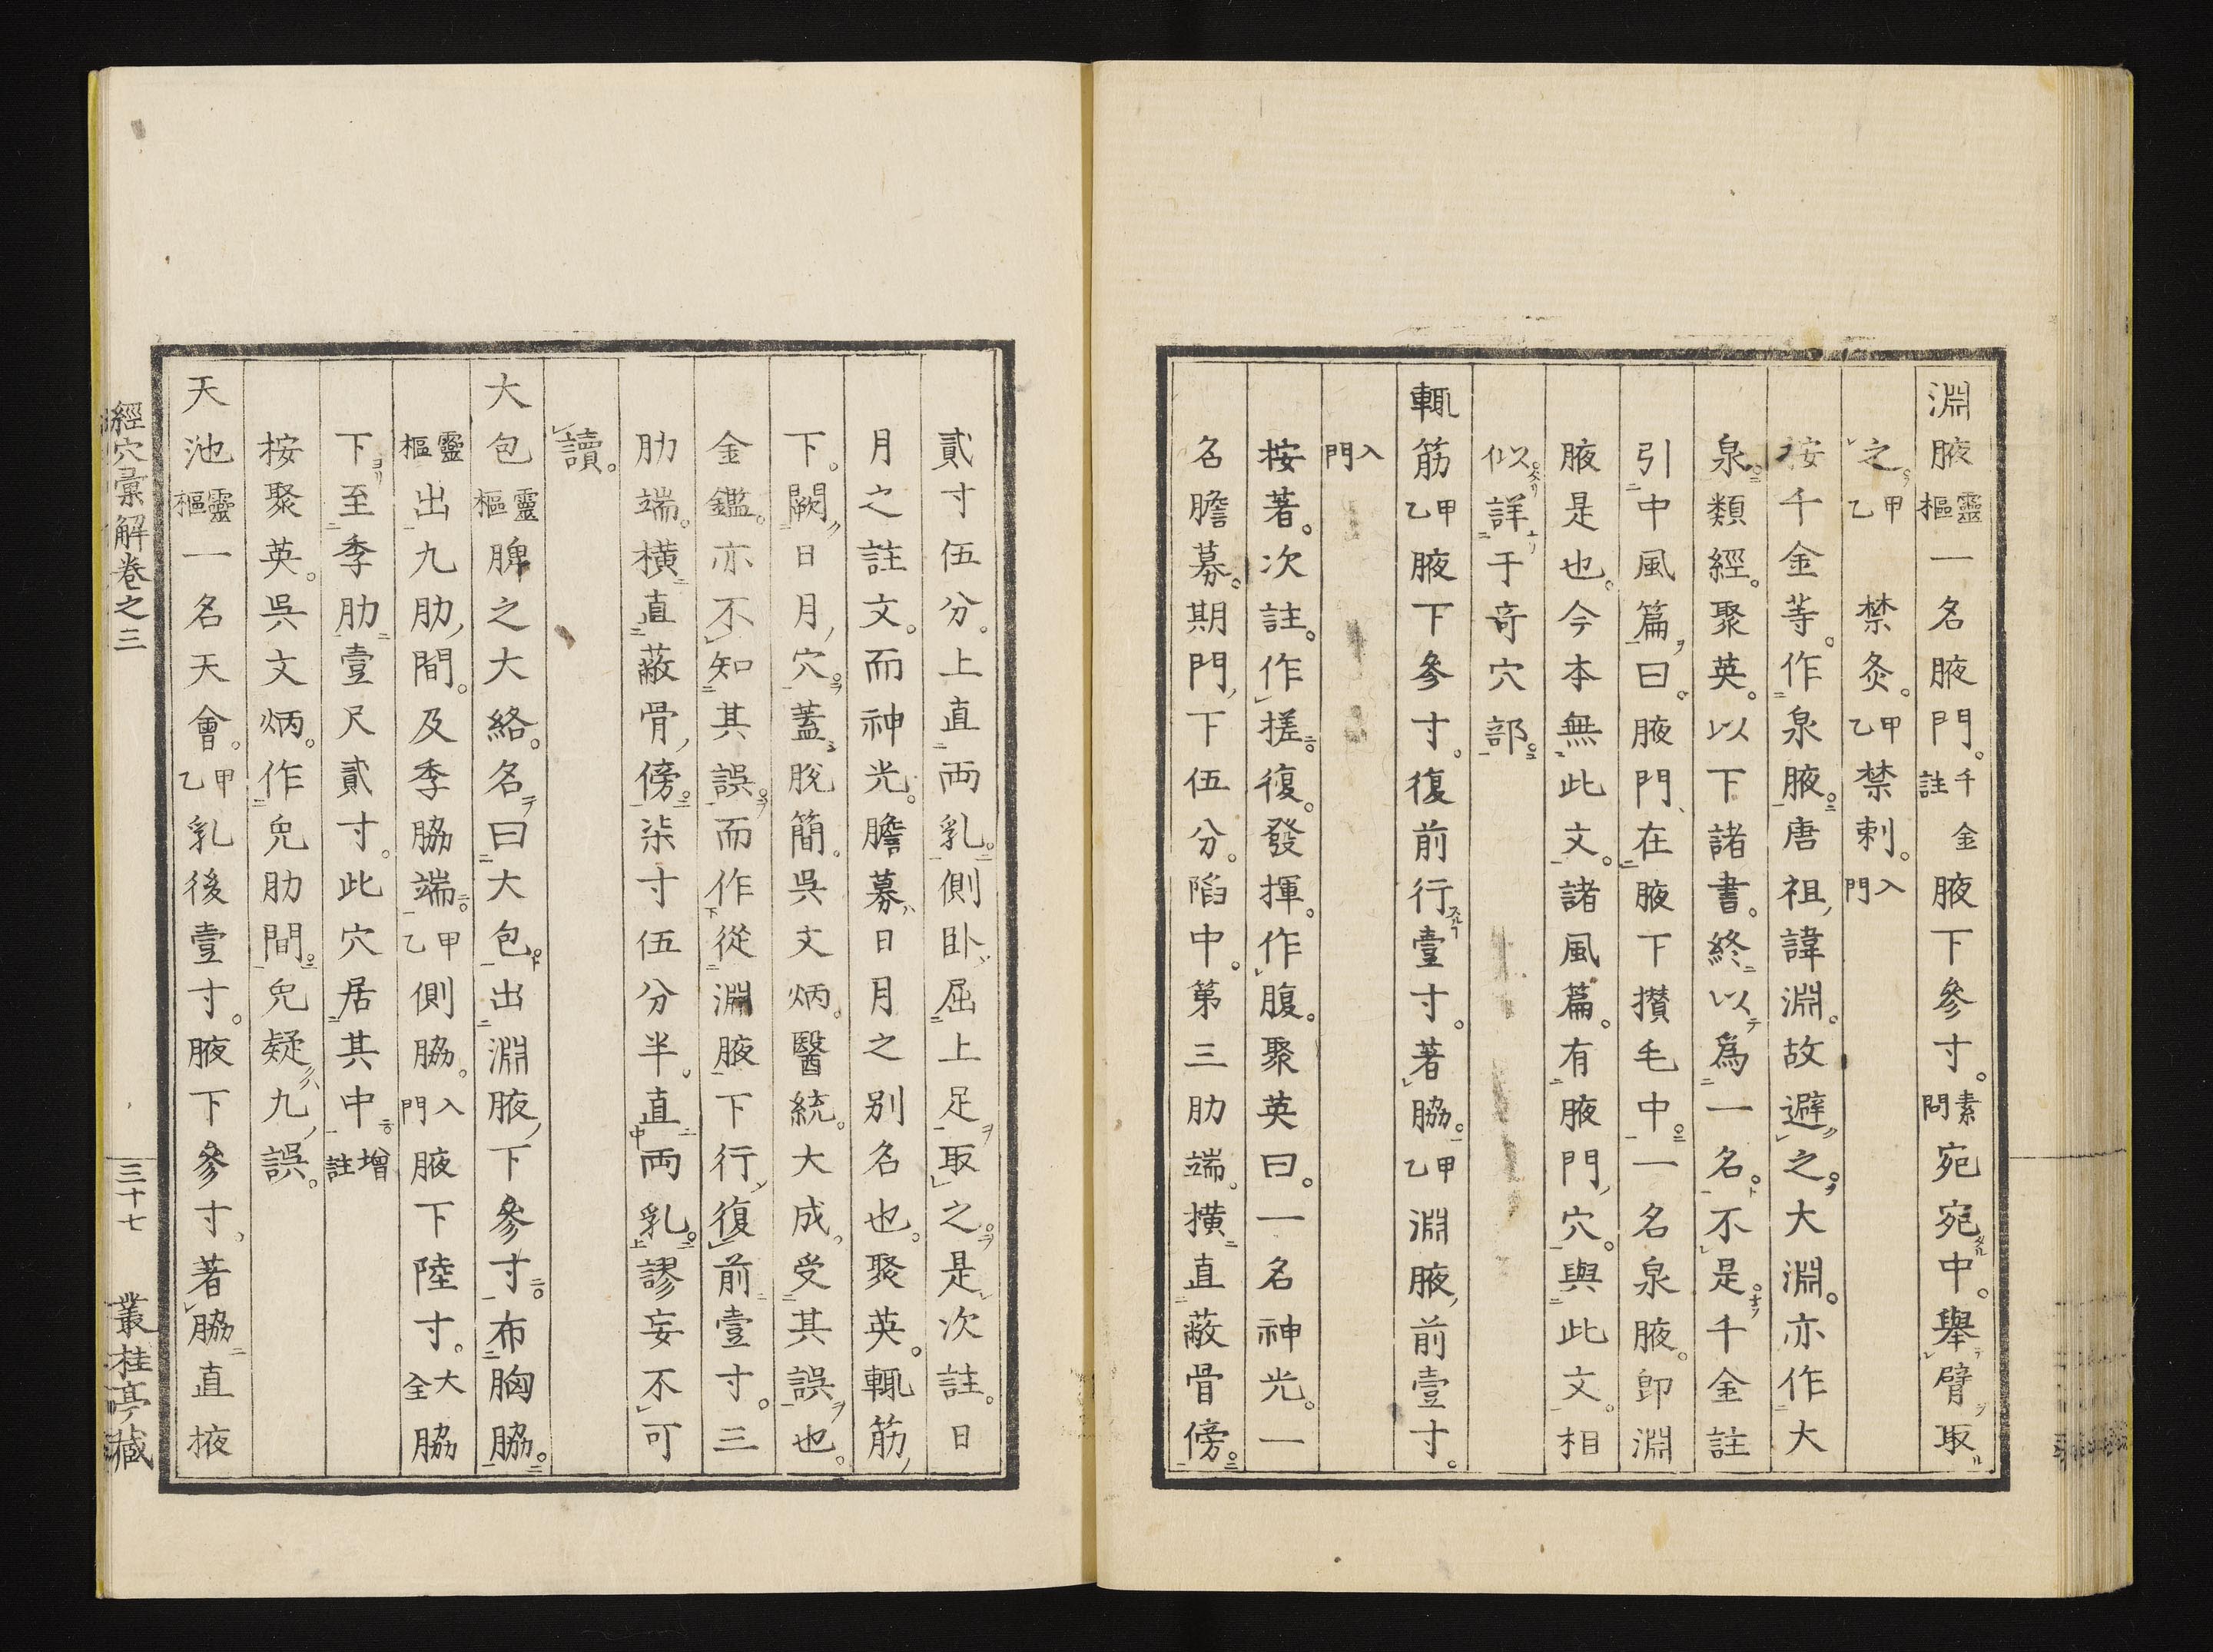 淵腋靈樞一名腋門。千金註腋下參寸。素問宛宛中。舉臂取
之。甲乙禁灸。甲乙禁刺。入門
按千金等。作泉腋。唐祖諱淵。故避之。大淵。亦作大
泉。類經。聚英。以下諸書。終以爲一名。不是。千金註
引中風篇曰。腋門在腋下攅毛中。一名泉腋。卽淵
腋是也。今本無此文。諸風篇。有腋門穴。與此文。相
似。詳于奇穴部。
輒筋甲乙腋下參寸。復前行壹寸。著脇。甲乙淵腋前壹寸。
入門
按著。次註。作搓。復。發揮。作腹。聚英曰。一名神光。一
名膽募。期門下伍分。陷中。第三肋端。橫直蔽骨傍。
貳寸伍分。上直両乳。側卧屈上足取之。是次註。日
月之註文。而神光。膽募日月之別名也。聚英。輒筋
下。闕日月穴。蓋脫簡。吳文炳。醫統。大成。受其誤也。
金鑑。亦不知其誤。而作從淵腋下行復前壹寸。三
肋端。橫直蔽骨傍。柒寸伍分半。直両乳。謬妄不可
讀。
大包靈樞脾之大絡。名曰大包。出淵腋下參寸。布胸脇。
靈樞出九肋間。及季脇端。甲乙側脇。入門腋下陸寸。大全脇
下至季肋壹尺貳寸。此穴居其中。增註
按聚英。吳文炳。作免肋間。免疑九誤。
天池靈樞一名天會。甲乙乳後壹寸。腋下參寸。著脇直掖
經穴彙解卷之三　三十七　叢桂亭藏